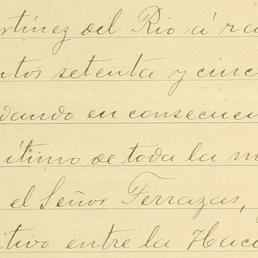 rtínez del Rio á ra
ntos setenta y cinc
dando en consecuen
ítimo de toda la m
el Señor Terrazas,
itivo entre la Haci